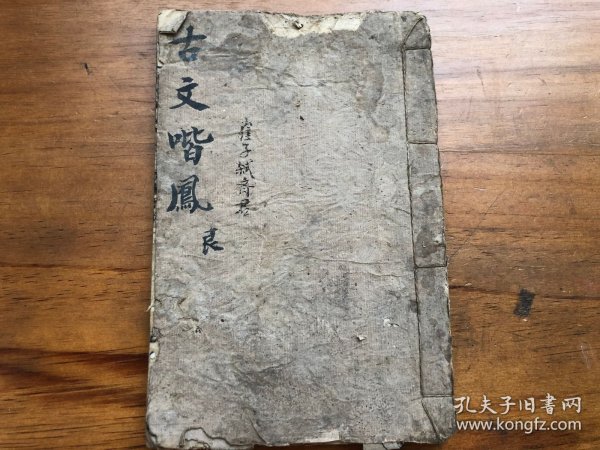 古文喈鳳
良
崔子弑齊君
孔夫子旧書网
www.kongfz.com